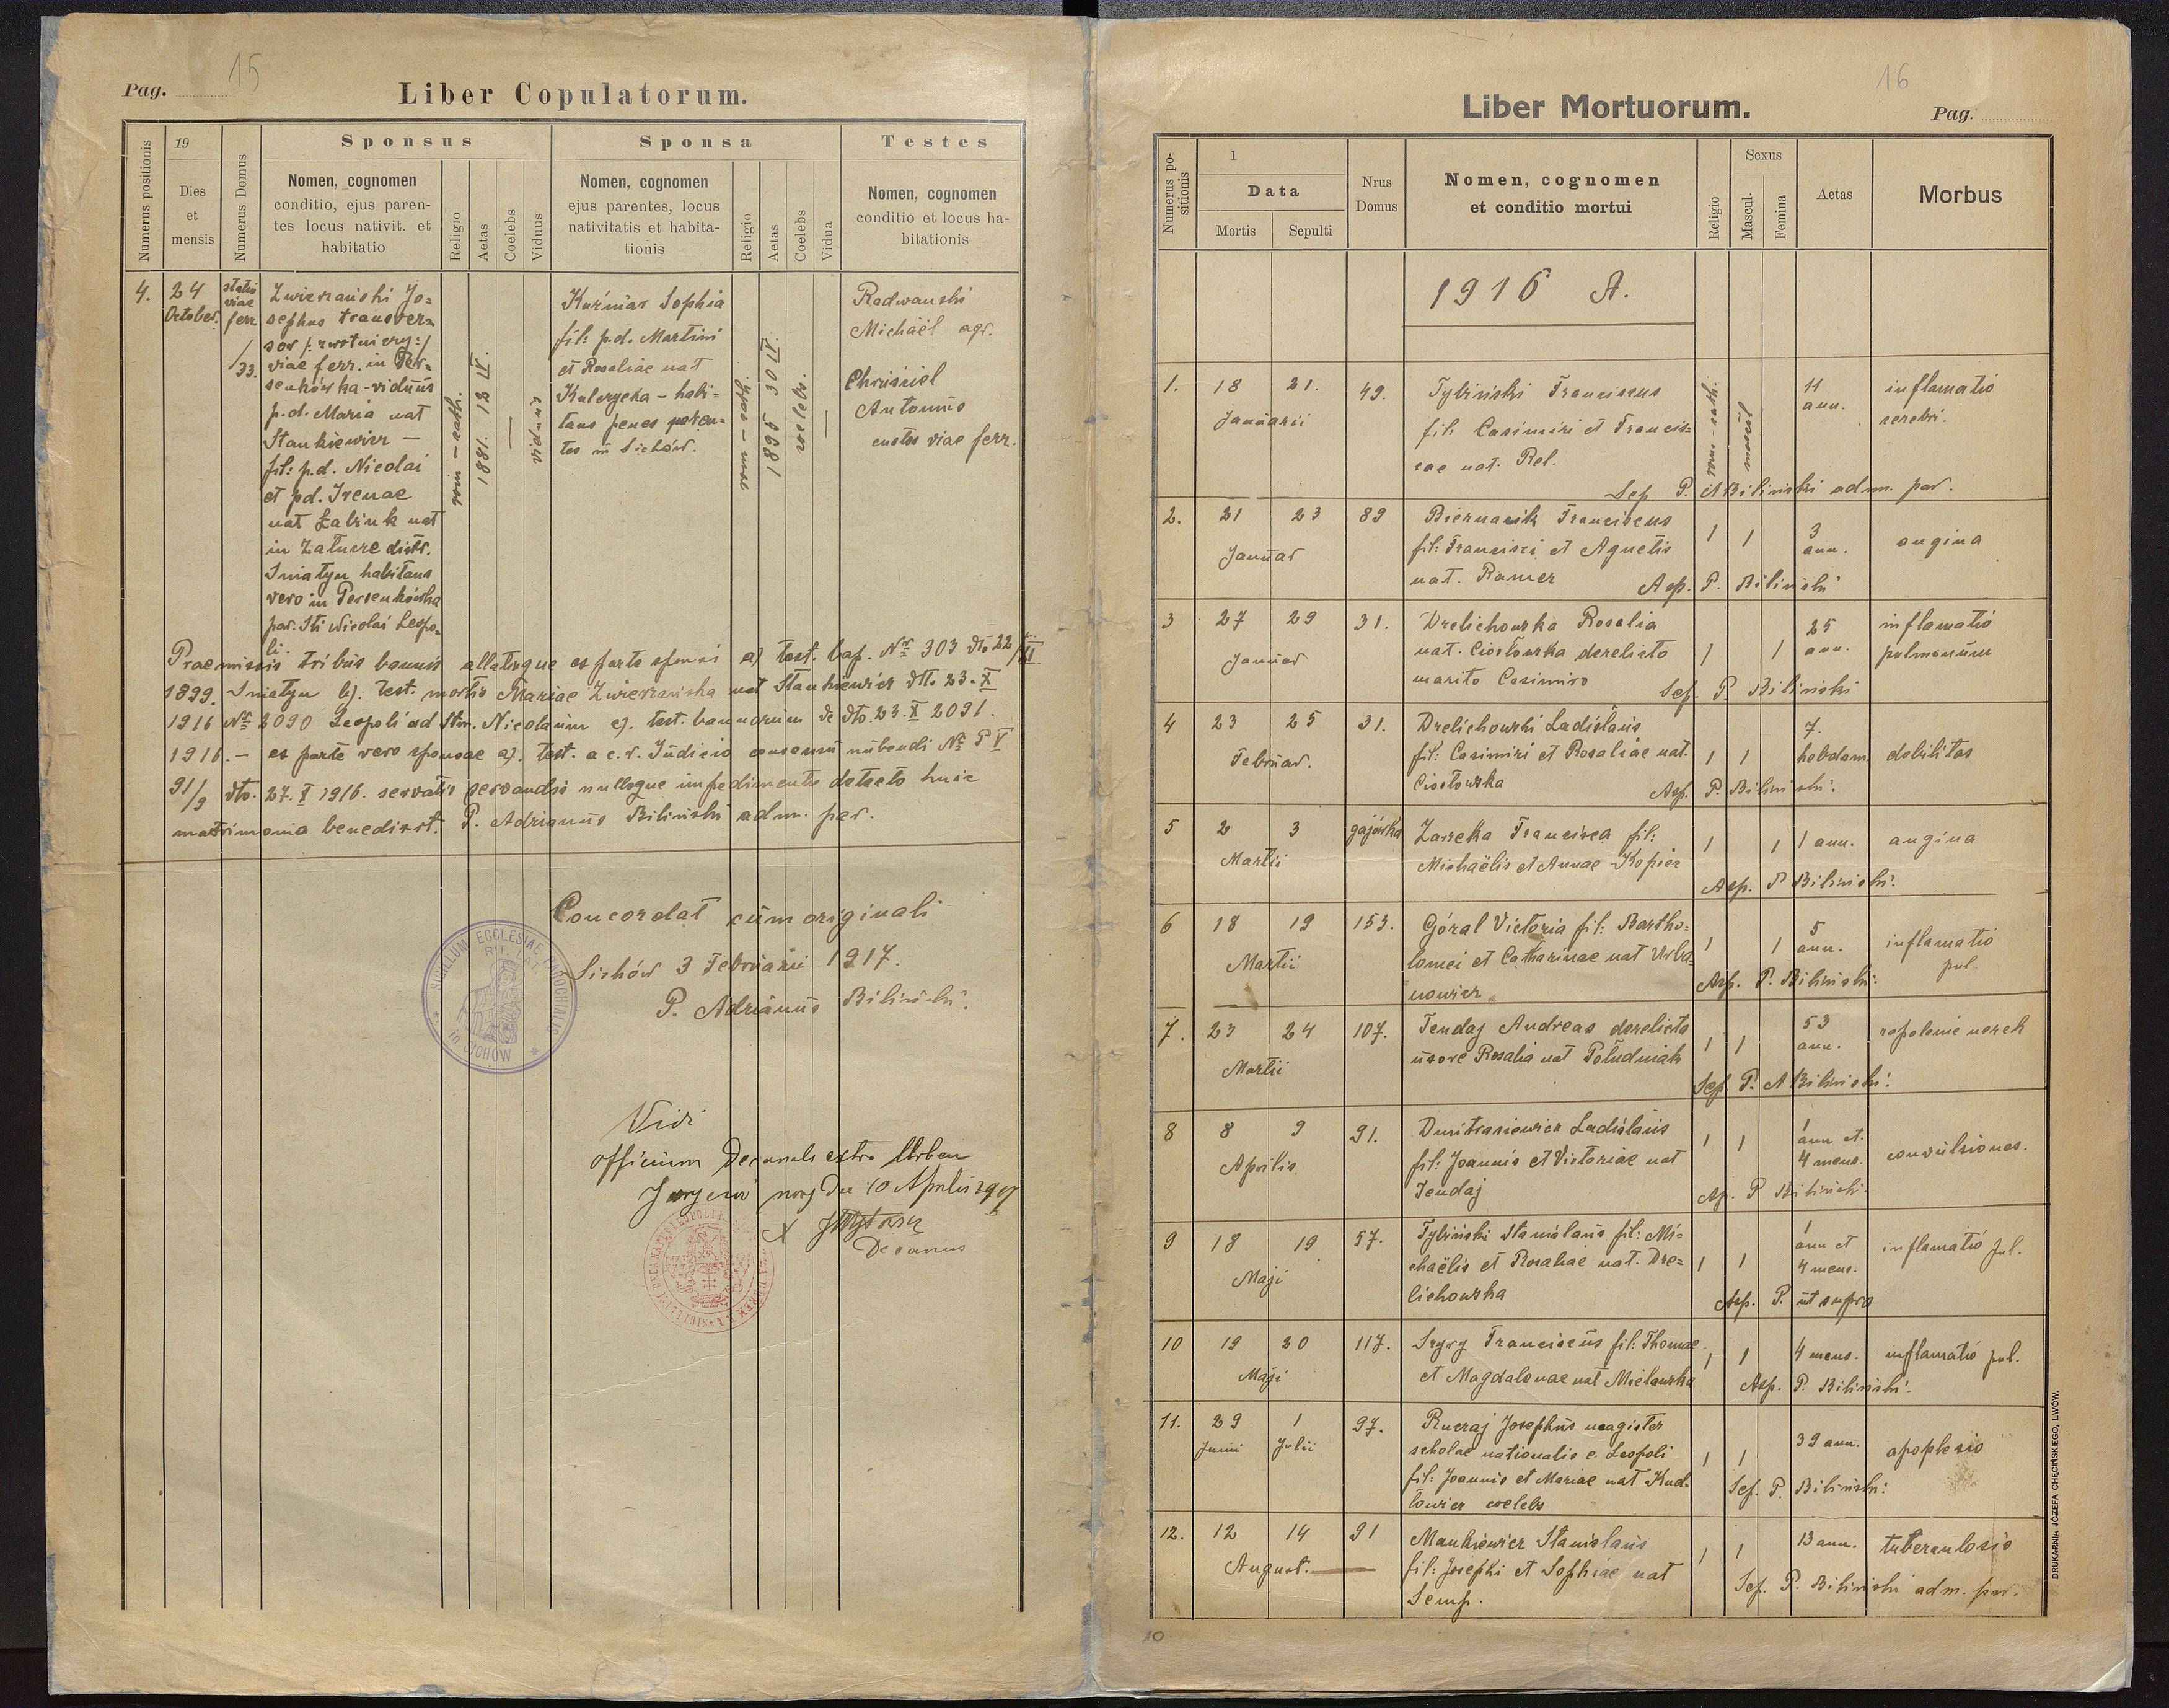 15
Pag.
Liber Copulatorum.
Numerus positionis
19
Dies
et
mensis
Numerus Domus
Sponsus
Nomen, cognomen
conditio, ejus paren-
tes locus nativit. et
habitatio
Religio
Aetas
Coelebs
Viduus
Sponsa
Nomen, cognomen
ejus parentes, locus
nativitatis et habita-
tionis
Religio
Aetas
Coelebs
Vidua
Testes
Nomen, cognomen
conditio et locus ha-
bitationis
4.
24
October.
statio
viae
ferr
/33.
Zwierzański Jo=
sephus transver=
sor /: zwrotniczy :/
viae ferr. in Per=
senkówka - viduus
p.d. Maria nat
Stankiewicz -
fil: p.d. Nicolai
et pd. Irenae
nat Łabiuk nat
in Zatucze distr.
Sniatyn habitans
vero in Persenkówka
par. Sti Nicolai Leopo-
li.
rom - cath.
1881. 12 IV.
viduus
Kuźniar Sophia
fil: p.d. Martini
et Rosaliae nat
Kulczycka - habi=
tans penes paren=
tes in Sichów.
rom - cath.
1895 30 IV.
coelebs.
Radwański
Michäel agr.
Chruściel
Antonius
custos viae ferr.
Praemissis tribus bannis allatisque ex parte sponsi a) test. bap. Nr 303 dto 22/
1899. Sniatyn b). test. mortis Mariae Zwierzańska nat Stankiewicz dtto. 23. X
1916 Nr 2090 Leopoli ad Stm. Nicolaum c). test. bannorum de dto. 23. X 2091.
1916. - ex parte vero sponsae a). test. a c. r. Judicio consensu nubendi Nr P V
91/2 dto. 27. X 1916. servatis servandis nulloque impedimento detecto huic
matrimonio benedixit. P. Adrianus Biliński adm. par.
Concordat cum originali
Sichów 3 Februarii 1917.
P. Adrianus Biliński.
SIGILLUM ECCLESIAE PAROCHIALIS
RIT. LAT.
in SICHÓW
Vidi
Officium Decanale extra Urbem
die 10 Aprilis 1917
Decanus
16
Liber Mortuorum.
Pag.
Numerus po-
sitionis
1
Data
Mortis
Sepulti
Nrus
Domus
Nomen, cognomen
et conditio mortui
Religio
Sexus
Mascul.
Femina
Aetas
Morbus
1916 A.
1. 18 21. 49. Tybiński Franciscus 11 inflamatio
Januarii fil: Casimiri et Francis= ann. cerebri.
cae nat. Rel.
rom - cath.
mascul
Sep P. A Biliński adm. par.
2. 21 23 89 Biernacik Franciscus 1 1 3 angina
Januar fil: Francisci et Agnetis ann.
nat. Ramer Asp. P. Biliński
3 27 29 31. Drelichowska Rosalia 25 inflamatio
Januar nat. Ciosłowska derelicto 1 1 ann. pulmonum
marito Casimiro Sep. P Biliński
4 23 25 31. Drelichowski Ladislaus 7.
Februar. fil: Casimiri et Rosaliae nat. 1 1 hebdom. debilitas
Ciosłowska Asp. P. Biliński.
5 2 3 gajówka Zarzeka Francisca fil: 1 1 1 ann. angina
Martii Michaëlis et Annae Kopiec
Asp. P Biliński.
6 18 19 153. Góral Victoria fil: Bartho= 1 1 5 inflamatio
Martii lomei et Catharinae nat Urba= ann. pul.
nowicz Asp. P. Biliński.
7. 23 24 107. Tendaj Andreas derelicta 53 zapalenie nerek
Martii uxore Rosalia nat Południak 1 1 ann.
Sep. P. A Biliński.
8 8 9 91. Dmitrasiewicz Ladislaus 1 1 1
Aprilis. fil: Joannis et Victoriae nat ann et. convulsiones.
Tendaj 4 mens.
Ap. P Biliński.
9 18 19 57. Tybiński Stanislaus fil: Mi= 1
Maji chaëlis et Rosaliae nat. Dre= 1 1 ann et inflamatio pul.
lichowska 4 mens.
Asp. P. ut supra
10 19 20 117. Szyzy Franciscus fil: Thomae 1 1 4 mens. inflamatio pul.
Maji et Magdalenae nat Mielawska
Asp. P. Biliński.
11. 29 1 97. Ruczaj Josephus magister 39 ann. apoplexio
Junii Julii scholae nationalis e. Leopoli 1 1
fil: Joannis et Mariae nat Kud- Sep. P. Biliński.
łowicz coelebs
12. 12 14 91 Mankiewicz Stanislaus 1 1 13 ann. tuberculosis
August. fil: Josephi et Sophiae nat
Semp. Sep. P. Biliński adm. par.
DRUKARNIA JÓZEFA CHĘCIŃSKIEGO, LWÓW.
10